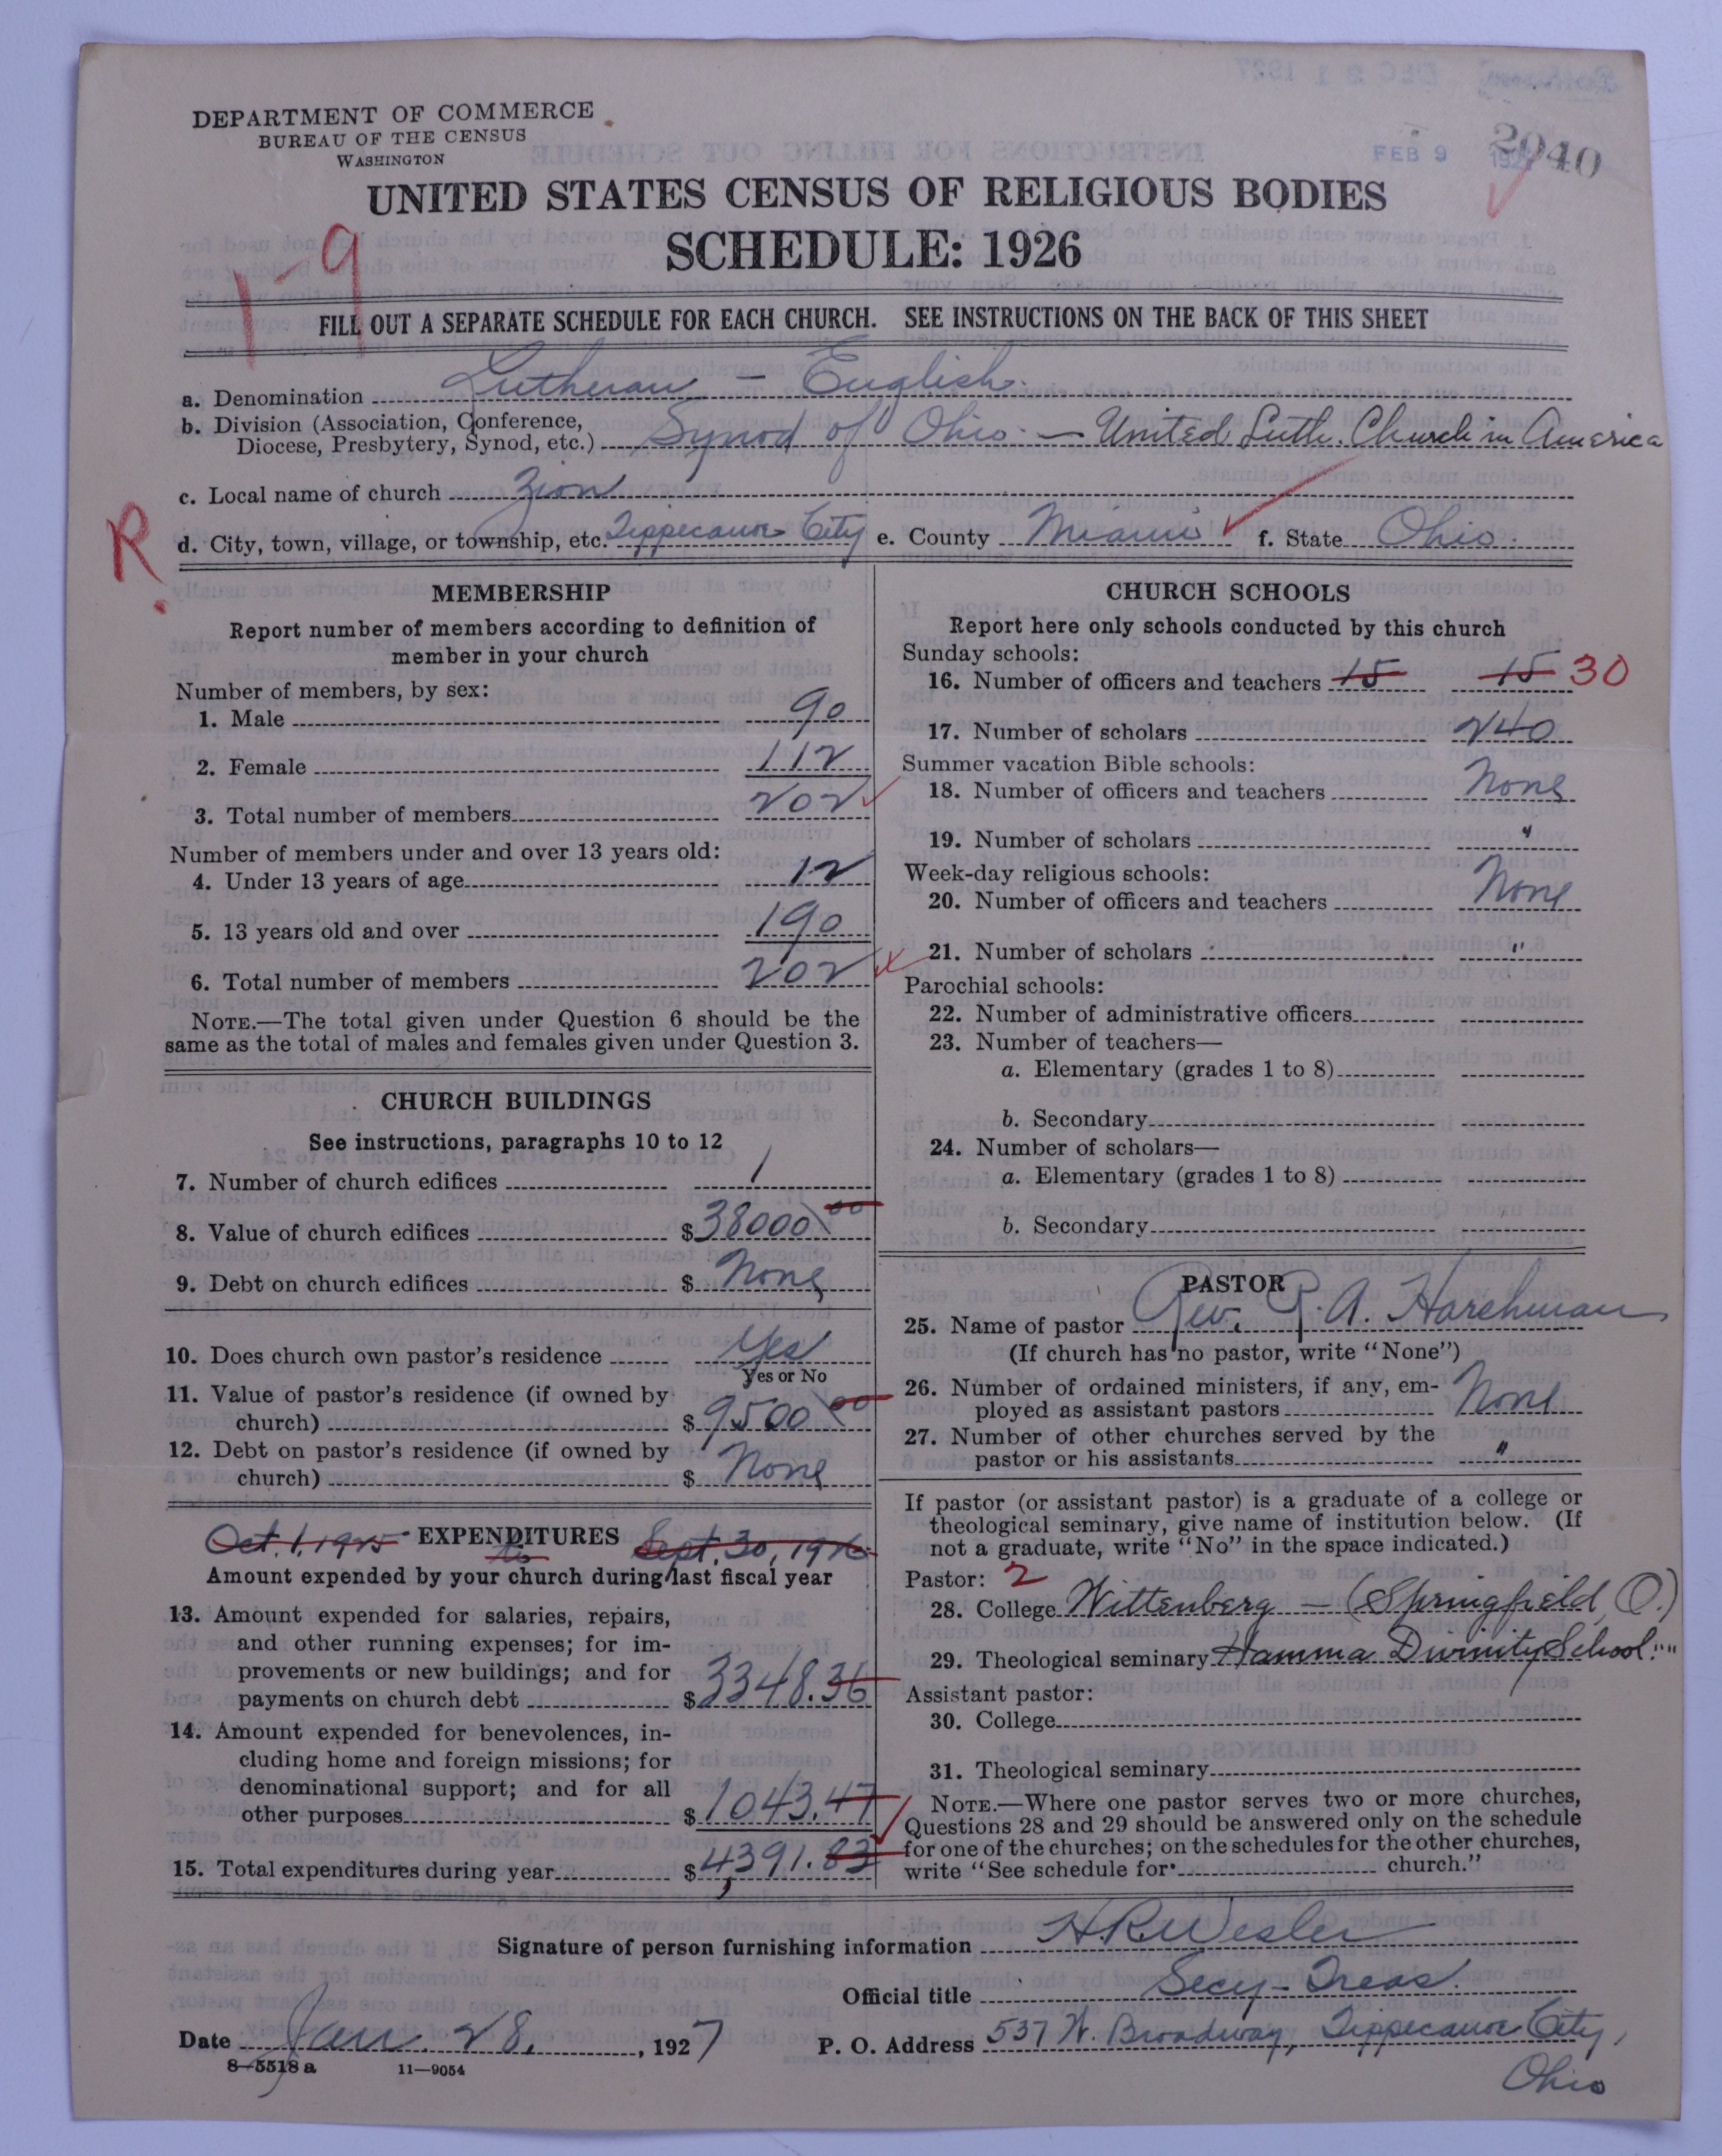 DEPARTMENT OF COMMERCE
BUREAU OF THE CENSUS
WASHINGTON
FEB 9 2040
UNITED STATES CENSUS OF RELIGIOUS BODIES
SCHEDULE: 1926
1-9
FILL OUT A SEPARATE SCHEDULE FOR EACH CHURCH. SEE INSTRUCTIONS ON THE BACK OF THIS SHEET
a. Denomination Lutheran - English
b. Division (Association, Conference,
Diocese, Presbytery, Synod, etc.) Synod of Ohio - United Luth. Church in America
c. Local name of church Zion
R
d. City, town, village, or township, etc. Tippecanoe City e. County Miami f. State Ohio.
MEMBERSHIP
Report number of members according to definition of
member in your church
Number of members, by sex:
1. Male 90
2. Female 112
3. Total number of members 202
Number of members under and over 13 years old:
4. Under 13 years of age 12
5. 13 years old and over 190
6. Total number of members 202
NOTE.—The total given under Question 6 should be the
same as the total of males and females given under Question 3.
CHURCH BUILDINGS
See instructions, paragraphs 10 to 12
7. Number of church edifices 1
8. Value of church edifices $38000 00
9. Debt on church edifices $ None
10. Does church own pastor's residence Yes
Yes or No
11. Value of pastor's residence (if owned by
church) $9500 00
12. Debt on pastor's residence (if owned by
church) $ None
Oct. 1, 1925 EXPENDITURES to Sept. 30, 1926
Amount expended by your church during last fiscal year
13. Amount expended for salaries, repairs,
and other running expenses; for im-
provements or new buildings; and for
payments on church debt $3348.36
14. Amount expended for benevolences, in-
cluding home and foreign missions; for
denominational support; and for all
other purposes $1043.47
15. Total expenditures during year $4,391.83
CHURCH SCHOOLS
Report here only schools conducted by this church
Sunday schools:
16. Number of officers and teachers 15 15 30
17. Number of scholars 240
Summer vacation Bible schools:
18. Number of officers and teachers None
19. Number of scholars "
Week-day religious schools:
20. Number of officers and teachers None
21. Number of scholars "
Parochial schools:
22. Number of administrative officers
23. Number of teachers—
a. Elementary (grades 1 to 8)
b. Secondary
24. Number of scholars—
a. Elementary (grades 1 to 8)
b. Secondary
PASTOR
25. Name of pastor Rev. A. Harshman
(If church has no pastor, write "None")
26. Number of ordained ministers, if any, em-
ployed as assistant pastors None
27. Number of other churches served by the
pastor or his assistants "
If pastor (or assistant pastor) is a graduate of a college or
theological seminary, give name of institution below. (If
not a graduate, write "No" in the space indicated.)
Pastor: 2
28. College Wittenberg - (Springfield, O.)
29. Theological seminary Hamma Divinity School " "
Assistant pastor:
30. College
31. Theological seminary
NOTE.—Where one pastor serves two or more churches,
Questions 28 and 29 should be answered only on the schedule
for one of the churches; on the schedules for the other churches,
write "See schedule for church."
Signature of person furnishing information H.R. Wesler
Official title Secy - Treas.
Date Jan. 28, 1927 P. O. Address 537 W. Broadway, Tippecanoe City,
Ohio
8—5518 a 11—9054